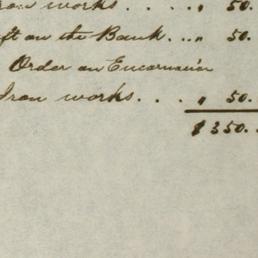 Iron works . . . " 50.
ft on the Bank . . . " 50.
Order on Encarnacion
Iron works . . . . " 50.
$350.